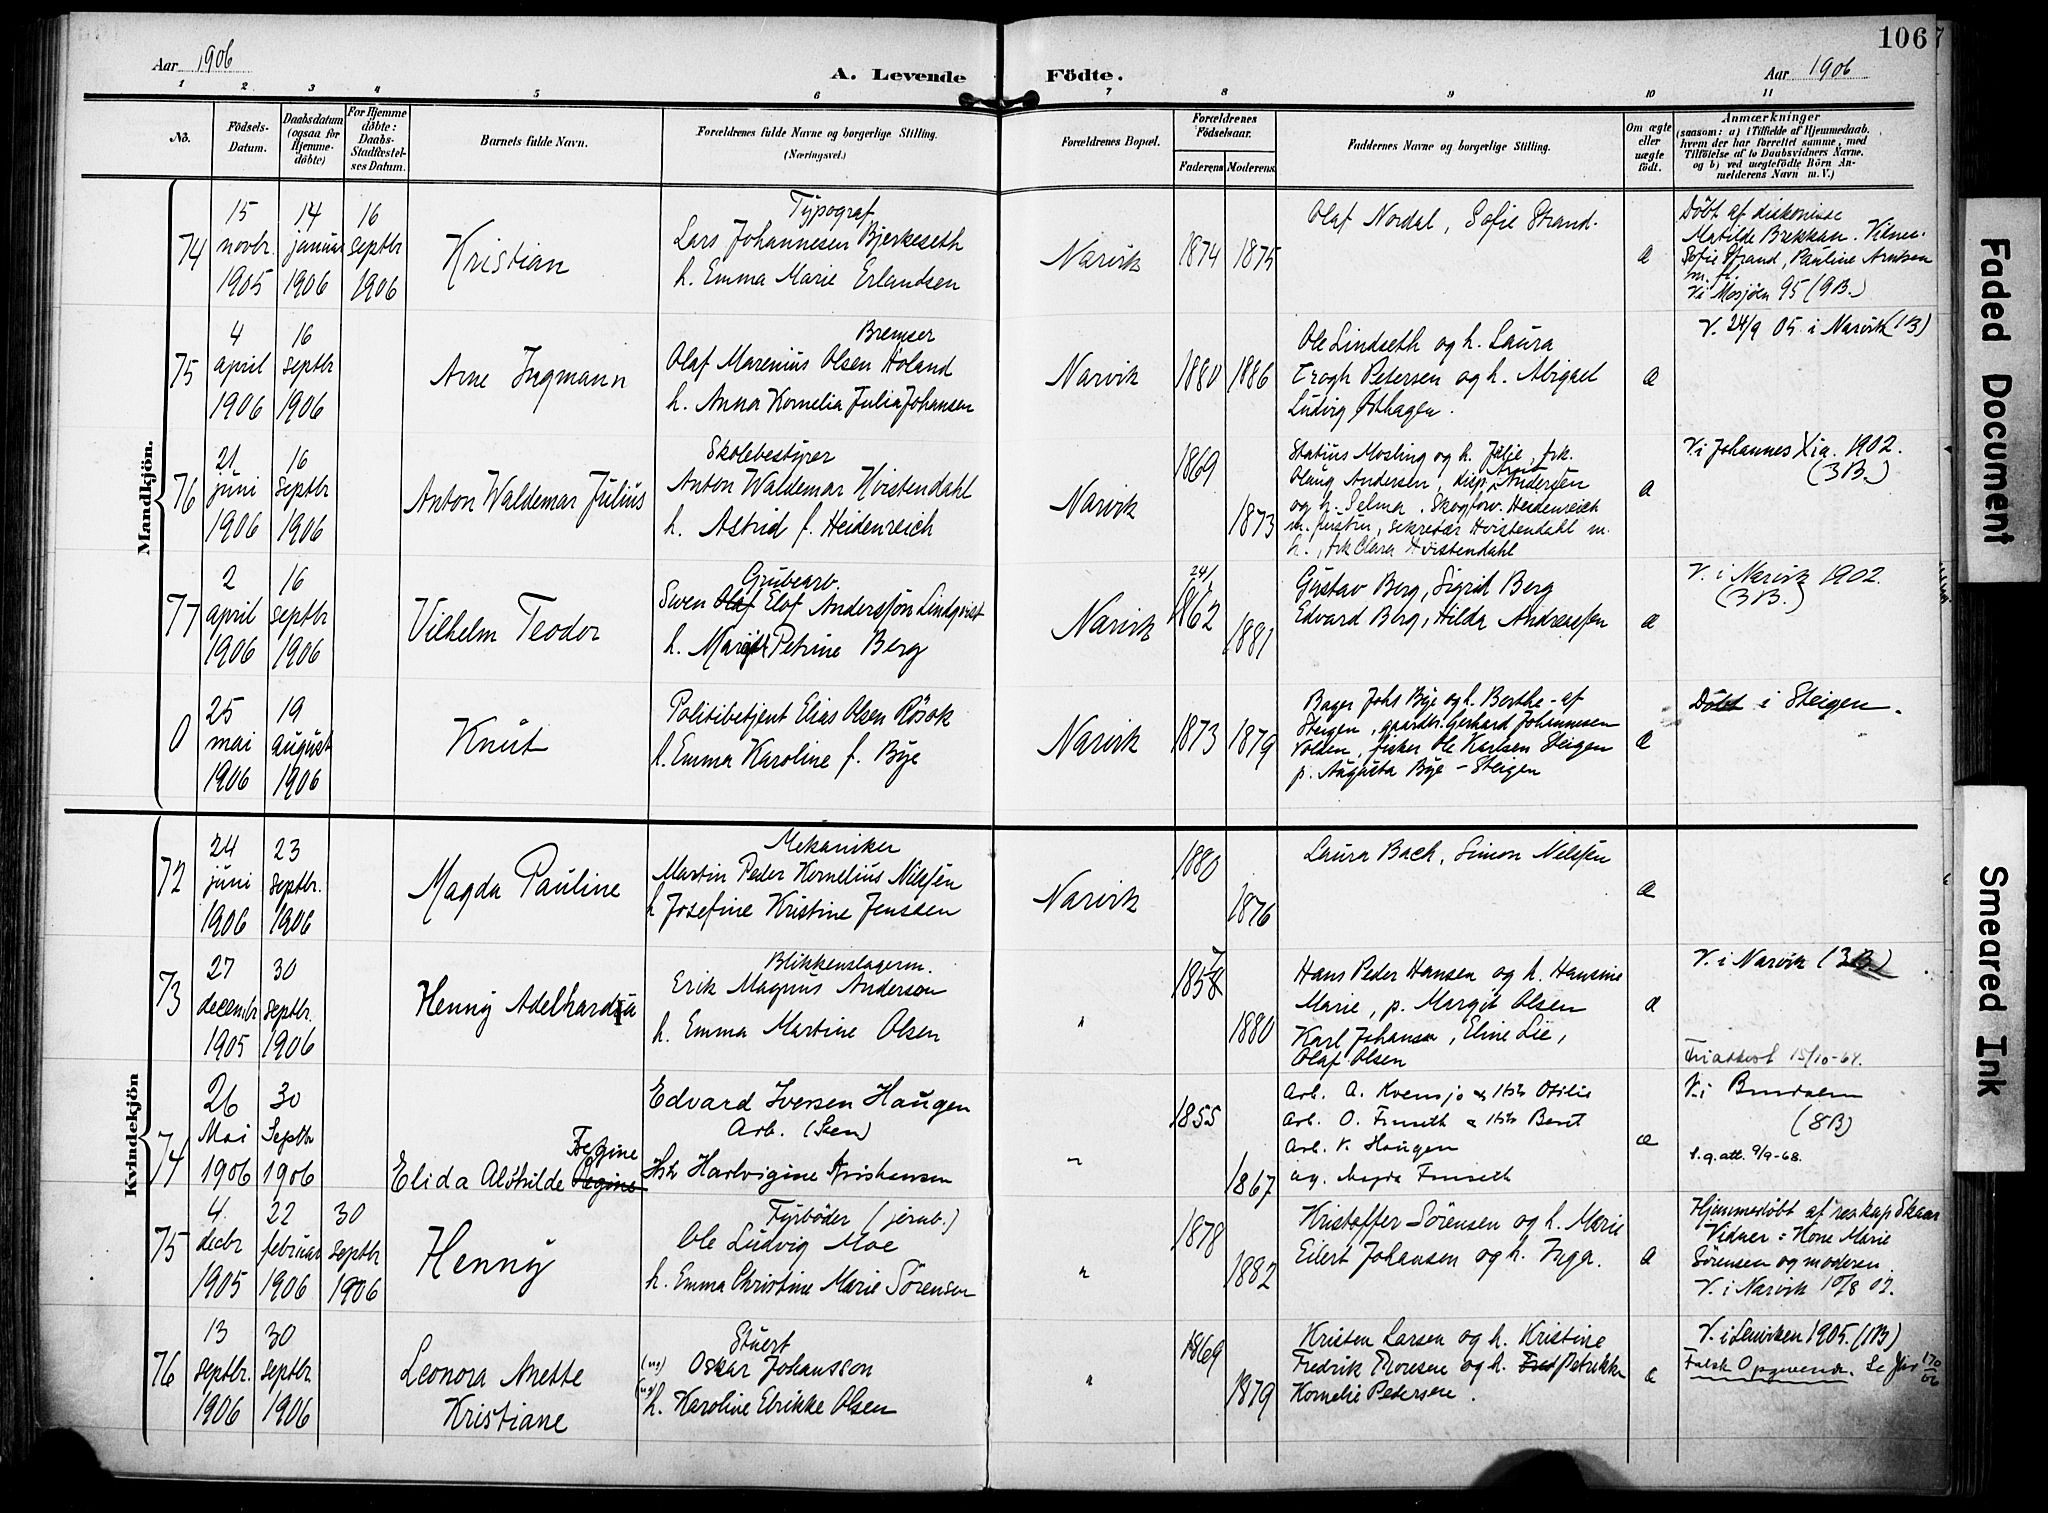 106
Aar 1906
A. Levende Födte.
Aar 1906
1 2 3 4 5 6 7 8 9 10 11
No.
Födsels-Datum.
Daabsdatum (ogsaa for Hjemme-döbte)
For Hjemme döbte: Daabs-Stadfæstelses Datum.
Barnets fulde Navn.
Forældrenes fulde Navne og borgerlige Stilling.
(Næringsvei.)
Forældrenes Bopæl.
Forældrenes Födselsaar.
Faderens Moderens
Faddernes Navne og borgerlige Stilling.
Om ægte eller uægte födt.
Anmærkninger
(saasom: a) i Tilfælde af Hjemmedaab,
hvem der har forrettet samme, med
Tilföielse af to Daabsvidners Navne.
og b) ved uegtefödte Börn An-
melderens Navn m. V.)
Mandkjön.
74
15 novbr. 1905
14 januar 1906
16 septbr 1906
Kristian
Typograf
Lars Johannesen Bjerkeseth
h. Emma Marie Erlandsen
Narvik
1874 1875
Olaf Nordal, Sofie Strand.
æ
Döbt af diskonisse
Matilde Brekkan. Vidner
Sofie Strand, Pauline Arntsen
m. fl.
V. i Mosjöen 95 (9B.)
75
4 april 1906
16 septbr 1906
Arne Ingmann
Bremser
Olaf Marenius Olsen Holand
h. Anna Kornelia Julia Johansen
Narvik
1880 1886
Ole Lindseth og h. Laura
Trogh Petersen og h. Abigael
Ludvig Østhagen.
æ
V. 24/9 05 i Narvik (1B)
76
21 juni 1906
16 septbr 1906
Anton Waldemar Julius
Skolebestyrer
Anton Waldemar Hvistendahl
h. Astrid f. Heidenreich
Narvik
1869 1873
Statius Mosling og h. Julie, frk.
Olaug Andersen, disp. Arnt Andersen
og h. Selma, Skogforv. Heidenreich
m. hustru, sekretær Hvistendahl m.
h., frk Clara Hvistendahl
æ
V. i Johannes Xia. 1902.
(3B.)
77
2 april 1906
16 septbr 1906
Vilhelm Teodor
Grubearb.
Swen Olaf Elof Andersson Lindqvist
h. Marie Petrine Berg
Narvik
24/ 1862 1881
Gustav Berg, Sigrid Berg
Edvard Berg, Hilda Andreassen
æ
V. i Narvik 1902.
(3B.)
0
25 mai 1906
19 august 1906
Knut
Politibetjent Elias Olsen Rösok
h. Emma Karoline f. Bye
Narvik
1873 1879
Bager Johs Bye og h. Berthe - af
Steigen, gaardbr. Gerhard Johannesen
Volden, fisker Ole Karlsen Steigen
p. Augusta Bye - Steigen
æ
Döbt i Steigen.
Kvindekjön
72
24 juni 1906
23 septbr. 1906
Magda Pauline
Mekaniker
Martin Peder Kornelius Nilssen
h Josefine Kristine Jenssen
Narvik
1880 1876
Laura Bach, Simon Nilssen
æ
73
27 decembr 1905
30 septbr. 1906
Henny Adelhardia
Blikkenslagerm.
Erik Magnus Anderson
h. Emma Martine Olsen
"
1858 7 1880
Hans Peder Hansen og h. Hansine
Marie, p. Margit Olsen
Karl Johansen, Eline Lie,
Olaf Olsen
æ
V. i Narvik (3B)
Friattest 15/10-64.
74
26 Mai 1906
30 Septbr 1906
Elida Alöhilde Regine
Edvard Iversen Haugen
Arb. (Sten)
Hstr Hartvigine Kristiansen
"
1855 1867
Arb. A. Kvensjo & Hstr Otilie
Arb. O. Finseth & Hstr Beret
Arb. V. Haugen
ug. Magda Finseth
æ
V. i
(8B)
s.q.att. 9/9-68.
75
4. decbr 1905
22 februar 1906
30 septbr 1906
Henny
Fyrböder (jernb.)
Ole Ludvig Moe
h. Emma Christine Marie Sörensen
"
1878 1882
Kristoffer Sörensen og h. Marie
Eilert Johansen og h. Inga.
æ
Hjemmedöbt af res kap Skaar
Vidner: Kone Marie
Sörensen og moderen.
V. i Narvik 10/8 02.
76
13 septbr. 1906
30 septbr 1906
Leonora Anette
Kristiane
Stuert
(ug) Oskar Johansson
(ug) h. Karoline Elrikke Olsen
"
1869 1879
Kristen Larsen og h. Kristine
Fredrik Thoresen og h. Petrikke
Kornelie Pedersen.
æ
V. i Lenviken 1905. (1B)
Falsk Opgivende. Se Jnr 170/06
Faded Document
Smeared Ink